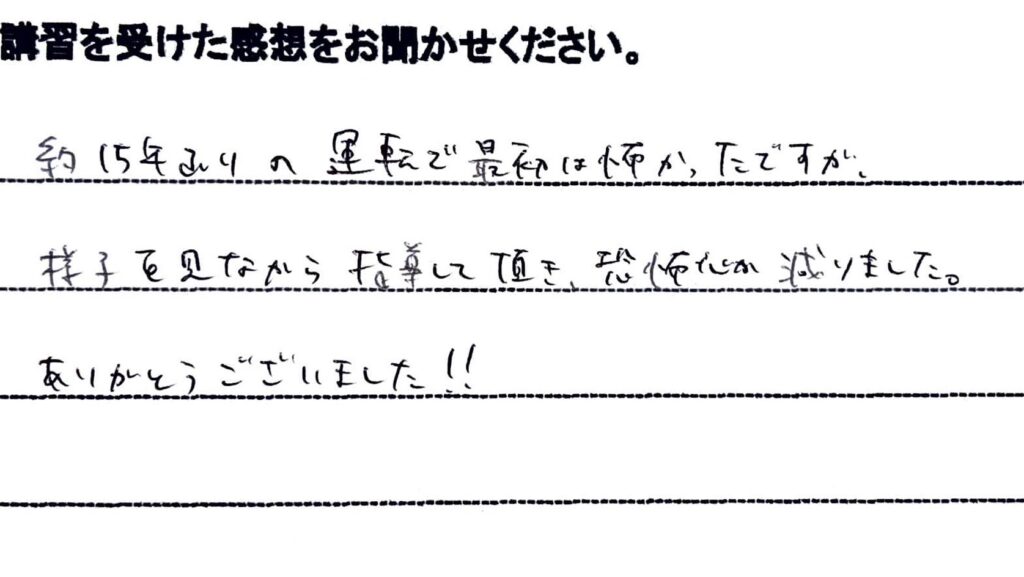 講習を受けた感想をお聞かせください。
約15年ぶりの運転で最初は怖かったですが、
様子を見ながら指導して頂き、恐怖心が減りました。
ありがとうございました!!